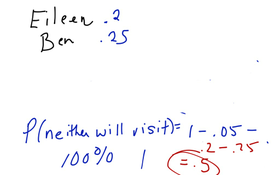 Eileen .2
Ben .25
P(neither will visit)= 1 - .05 -
.2 - .25
100% 1 = .5